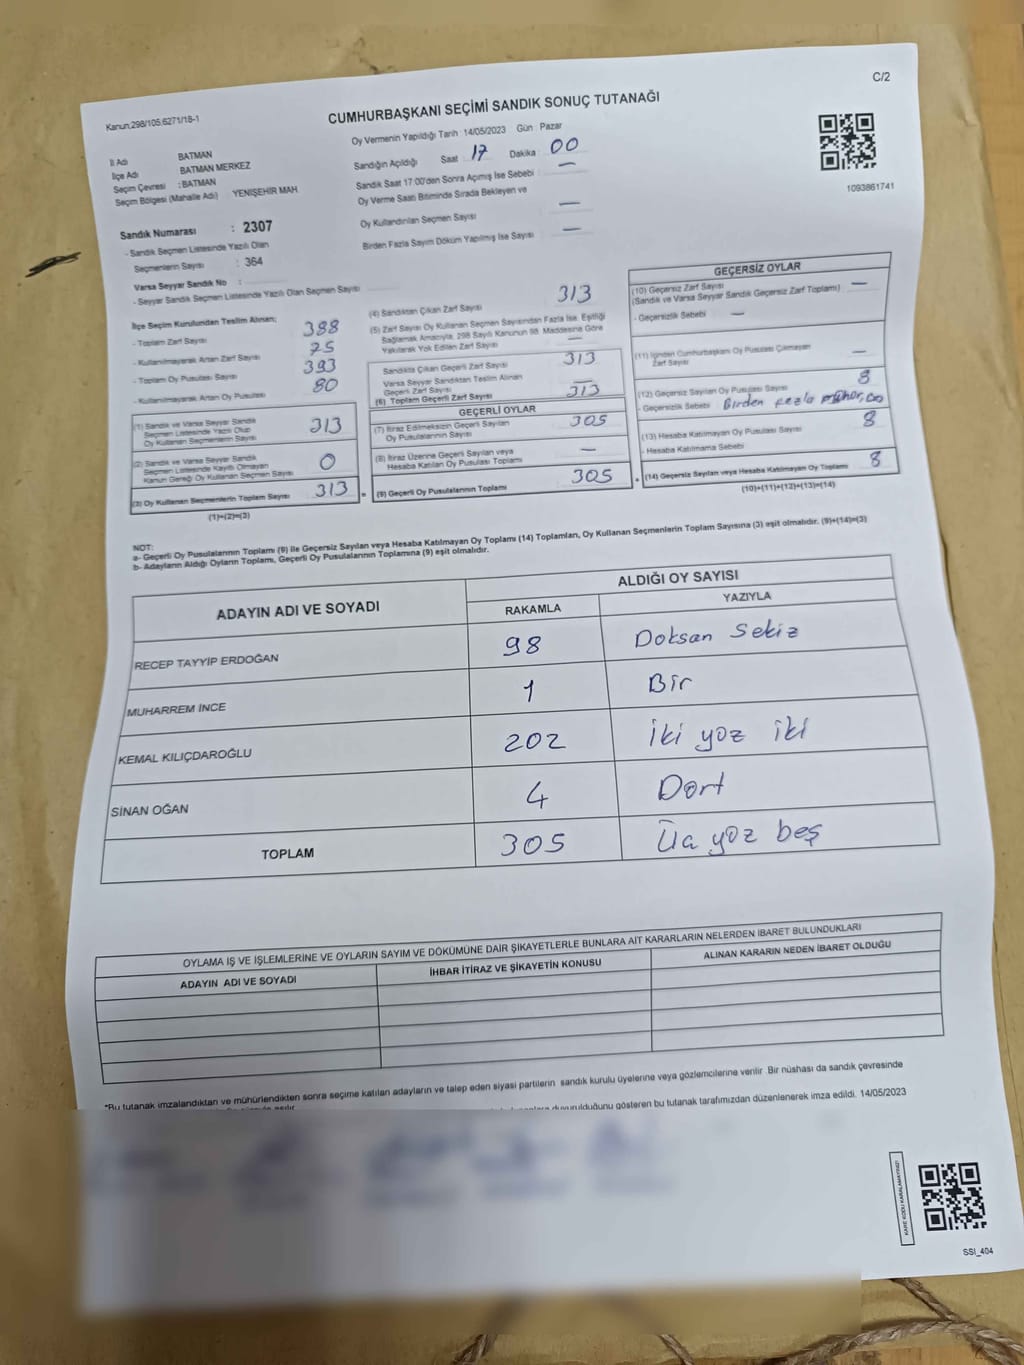 C/2
Kanun;298/105;6271/18-1
CUMHURBAŞKANI SEÇİMİ SANDIK SONUÇ TUTANAĞI
Oy Vermenin Yapıldığı Tarih : 14/05/2023 Gün : Pazar
İl Adı BATMAN
İlçe Adı BATMAN MERKEZ
Seçim Çevresi : BATMAN
Seçim Bölgesi (Mahalle Adı) YENİŞEHİR MAH.
Sandığın Açıldığı Saat 17 Dakika 00
Sandık Saat 17:00'den Sonra Açımış İse Sebebi : —
Oy Verme Saati Bitiminde Sırada Bekleyen ve
Oy Kullandırılan Seçmen Sayısı : —
Birden Fazla Sayım Döküm Yapılmış İse Sayısı : —
1093861741
Sandık Numarası : 2307
- Sandık Seçmen Listesinde Yazılı Olan
Seçmenlerin Sayısı : 364
Varsa Seyyar Sandık No :
- Seyyar Sandık Seçmen Listesinde Yazılı Olan Seçmen Sayısı
İlçe Seçim Kurulundan Teslim Alınan;
- Toplam Zarf Sayısı 388
- Kullanılmayarak Artan Zarf Sayısı 75
- Toplam Oy Pusulası Sayısı 393
- Kullanılmayarak Artan Oy Pusulası 80
(1) Sandık ve Varsa Seyyar Sandık
Seçmen Listesinde Yazılı Olup
Oy Kullanan Seçmenlerin Sayısı 313
(2) Sandık ve Varsa Seyyar Sandık
Seçmen Listesinde Kayıtlı Olmayan
Kanun Gereği Oy Kullanan Seçmen Sayısı 0
(3) Oy Kullanan Seçmenlerin Toplam Sayısı 313 =
(1)+(2)=(3)
(4) Sandıktan Çıkan Zarf Sayısı 313
(5) Zarf Sayısı Oy Kullanan Seçmen Sayısından Fazla İse, Eşitliği
Sağlamak Amacıyla, 298 Sayılı Kanunun 98. Maddesine Göre
Yakılarak Yok Edilen Zarf Sayısı —
Sandıkta Çıkan Geçerli Zarf Sayısı 313
Varsa Seyyar Sandıktan Teslim Alınan
Geçerli Zarf Sayısı —
(6) Toplam Geçerli Zarf Sayısı 313
GEÇERLİ OYLAR
(7) İtiraz Edilmeksizin Geçerli Sayılan
Oy Pusulalarının Sayısı 305
(8) İtiraz Üzerine Geçerli Sayılan veya
Hesaba Katılan Oy Pusulası Toplamı —
(9) Geçerli Oy Pusulalarının Toplamı 305 +
GEÇERSİZ OYLAR
(10) Geçersiz Zarf Sayısı —
(Sandık ve Varsa Seyyar Sandık Geçersiz Zarf Toplamı)
- Geçersizlik Sebebi —
(11) İçinden Cumhurbaşkanı Oy Pusulası Çıkmayan
Zarf Sayısı —
(12) Geçersiz Sayılan Oy Pusulası Sayısı 8
- Geçersizlik Sebebi Birden fazla
(13) Hesaba Katılmayan Oy Pusulası Sayısı 8
- Hesaba Katılmama Sebebi
(14) Geçersiz Sayılan veya Hesaba Katılmayan Oy Toplamı 8
(10)+(11)+(12)+(13)=(14)
NOT:
a- Geçerli Oy Pusulalarının Toplamı (9) ile Geçersiz Sayılan veya Hesaba Katılmayan Oy Toplamı (14) Toplamları, Oy Kullanan Seçmenlerin Toplam Sayısına (3) eşit olmalıdır. (9)+(14)=(3)
b- Adayların Aldığı Oyların Toplamı, Geçerli Oy Pusulalarının Toplamına (9) eşit olmalıdır.
ADAYIN ADI VE SOYADI ALDIĞI OY SAYISI
RAKAMLA YAZIYLA
RECEP TAYYİP ERDOĞAN 98 Doksan Sekiz
MUHARREM İNCE 1 Bir
KEMAL KILIÇDAROĞLU 202 iki yöz iki
SİNAN OĞAN 4 Dört
TOPLAM 305 Üç yöz beş
OYLAMA İŞ VE İŞLEMLERİNE VE OYLARIN SAYIM VE DÖKÜMÜNE DAİR ŞİKAYETLERLE BUNLARA AİT KARARLARIN NELERDEN İBARET BULUNDUKLARI
ADAYIN ADI VE SOYADI İHBAR İTİRAZ VE ŞİKAYETİN KONUSU ALINAN KARARIN NEDEN İBARET OLDUĞU
*Bu tutanak imzalandıktan ve mühürlendikten sonra seçime katılan adayların ve talep eden siyasi partilerin sandık kurulu üyelerine veya gözlemcilerine verilir. Bir nüshası da sandık çevresinde
duyurulduğunu gösteren bu tutanak tarafımızdan düzenlenerek imza edildi. 14/05/2023
KARE KODU KARALAMAYINIZ!
SSI_404